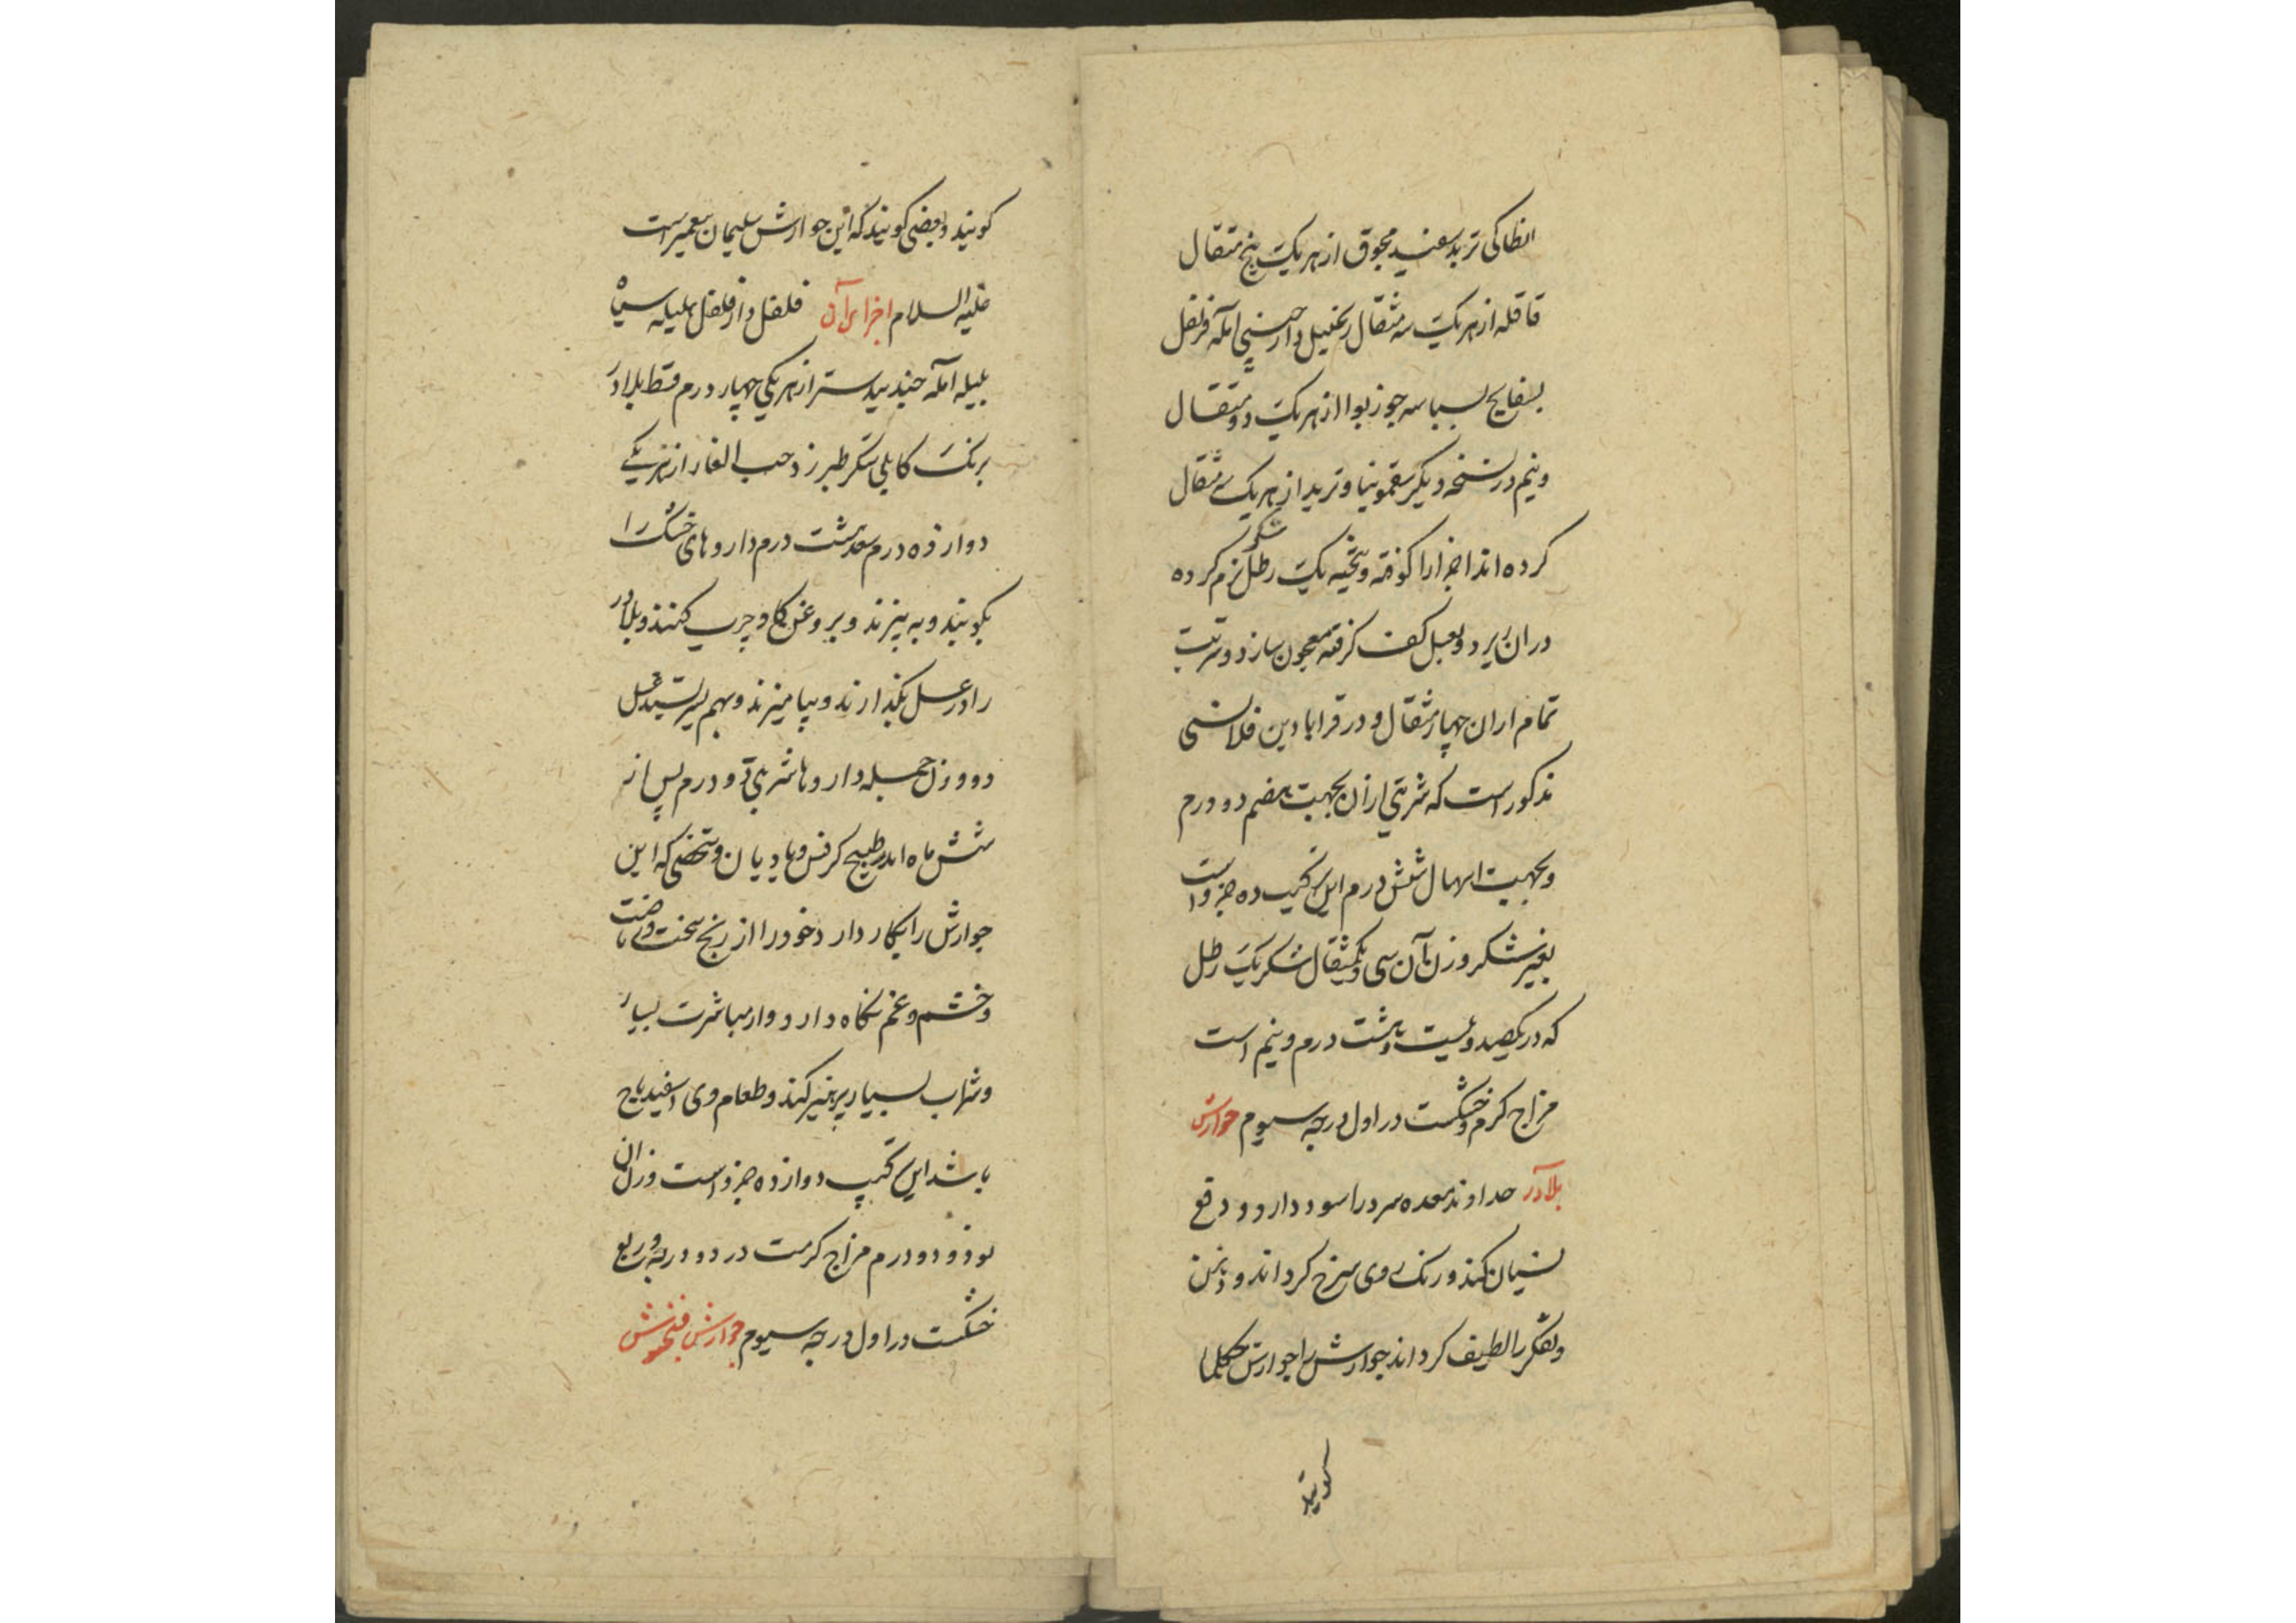 انطاکی تربد سفید مجوف از هر یک پنج مثقال
قاقله از هر یک سه مثقال زنجبیل دارچینی آمله قرنفل
بسفایج بسباسه جوزبوا از هر یک دو مثقال
و نیم در نسخه دیگر سقمونیا و تربد از هر یک سه مثقال
کرده اند اجزا را کوفته و بیخته یک رطل شکر نرم کرده
در آن ریزد و بعسل کف گرفته معجون سازد و شربت
تمام از آن چهار مثقال و در قرابادین قلانسی
مذکور است که شربتی از آن بجهت هضم دو درم
و بجهت اسهال شش درم این ترکیب ده جزو است
بغیر شکر وزن آن سی و یکمثقال شکر یک رطل
که در یکصد و بیست و هشت درم و نیم است
مزاج گرم و خشکست در اول درجه سیوم جوارش
بلادر خداوند معده سرد را سود دارد و دفع
نسیان کند و رنگ روی سرخ گرداند و ذهن
و تفکر را لطیف گرداند جوارش را جوارش حکما
گویند
گویند و بعضی گویند که این جوارش سلیمان پیغمبر است
علیه السلام اجزای آن فلفل دارفلفل هلیله سیاه
بلیله آمله جندبیدستر از هر یکی چهار درم قسط بلادر
برنگ کابلی شکر طبرزد حب الغار از هر یکی
دوازده درم سعد هشت درم داروهای خشک را
بکوبند و به بیزند و بروغن گاو چرب کنند و بلادر
را در عسل بگذارند و بیامیزند و بهم بسرشند عسل
دو وزن جمله داروها شربتی دو درم پس از
شش ماه اندر طبیخ کرفس و بادیان و شخصی که این
جوارش را بکار دارد خود را از رنج سخت و ریاضت
و خشم و غم نگاه دارد و از مباشرت بسیار
و شراب بسیار پرهیز کند و طعام وی اسفیدباج
باشد این ترکیب دوازده جزو است وزن آن
نود و دو درم مزاج گرمست در دو درجه و ربع
خشکست در اول درجه سیوم جوارش فنجنوش